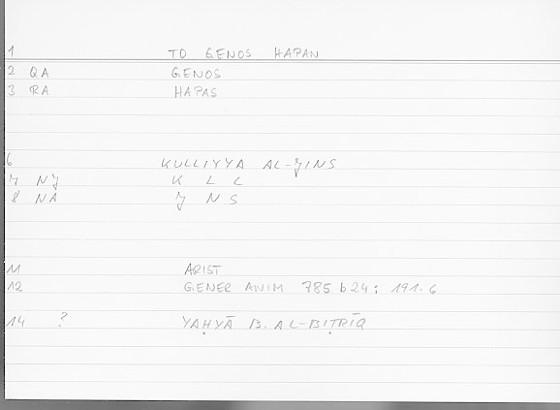 1 TO GENOS HAPAN
2 QA GENOS
3 RA HAPAS
6 KULLIYYA AL-JINS
7 NJ K L L
8 NA J N S
11 ARIST
12 GENER ANIM 785 b 24 : 191.6
14 ? YAḤYĀ B. AL-BIṬRĪQ